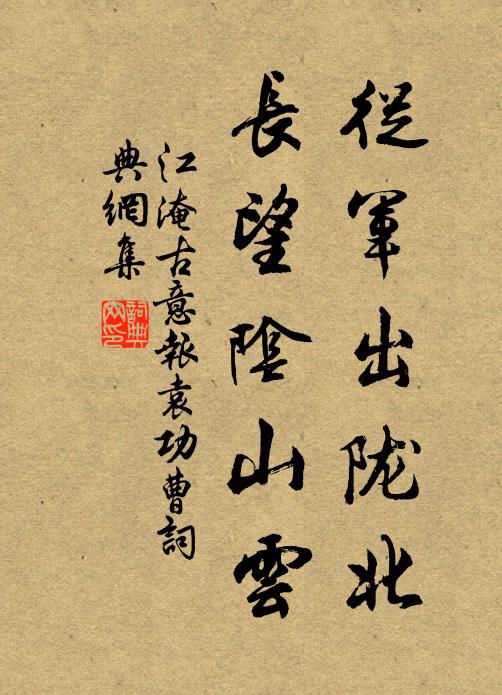 從軍出陇北
長望陰山雲
江淹古意報袁功曹詞
典網集
詞典
网印